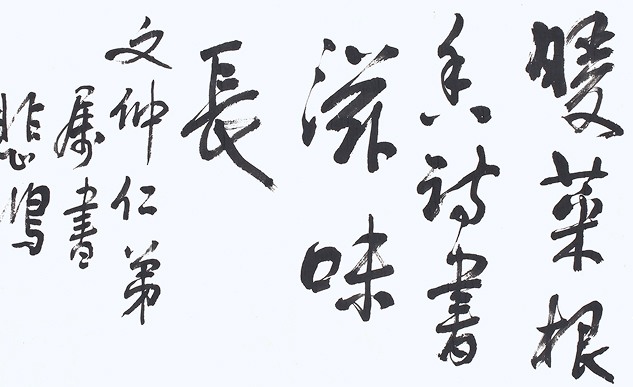 暖菜根
香詩書
滋味
長
文仲仁弟
属書
悲鴻